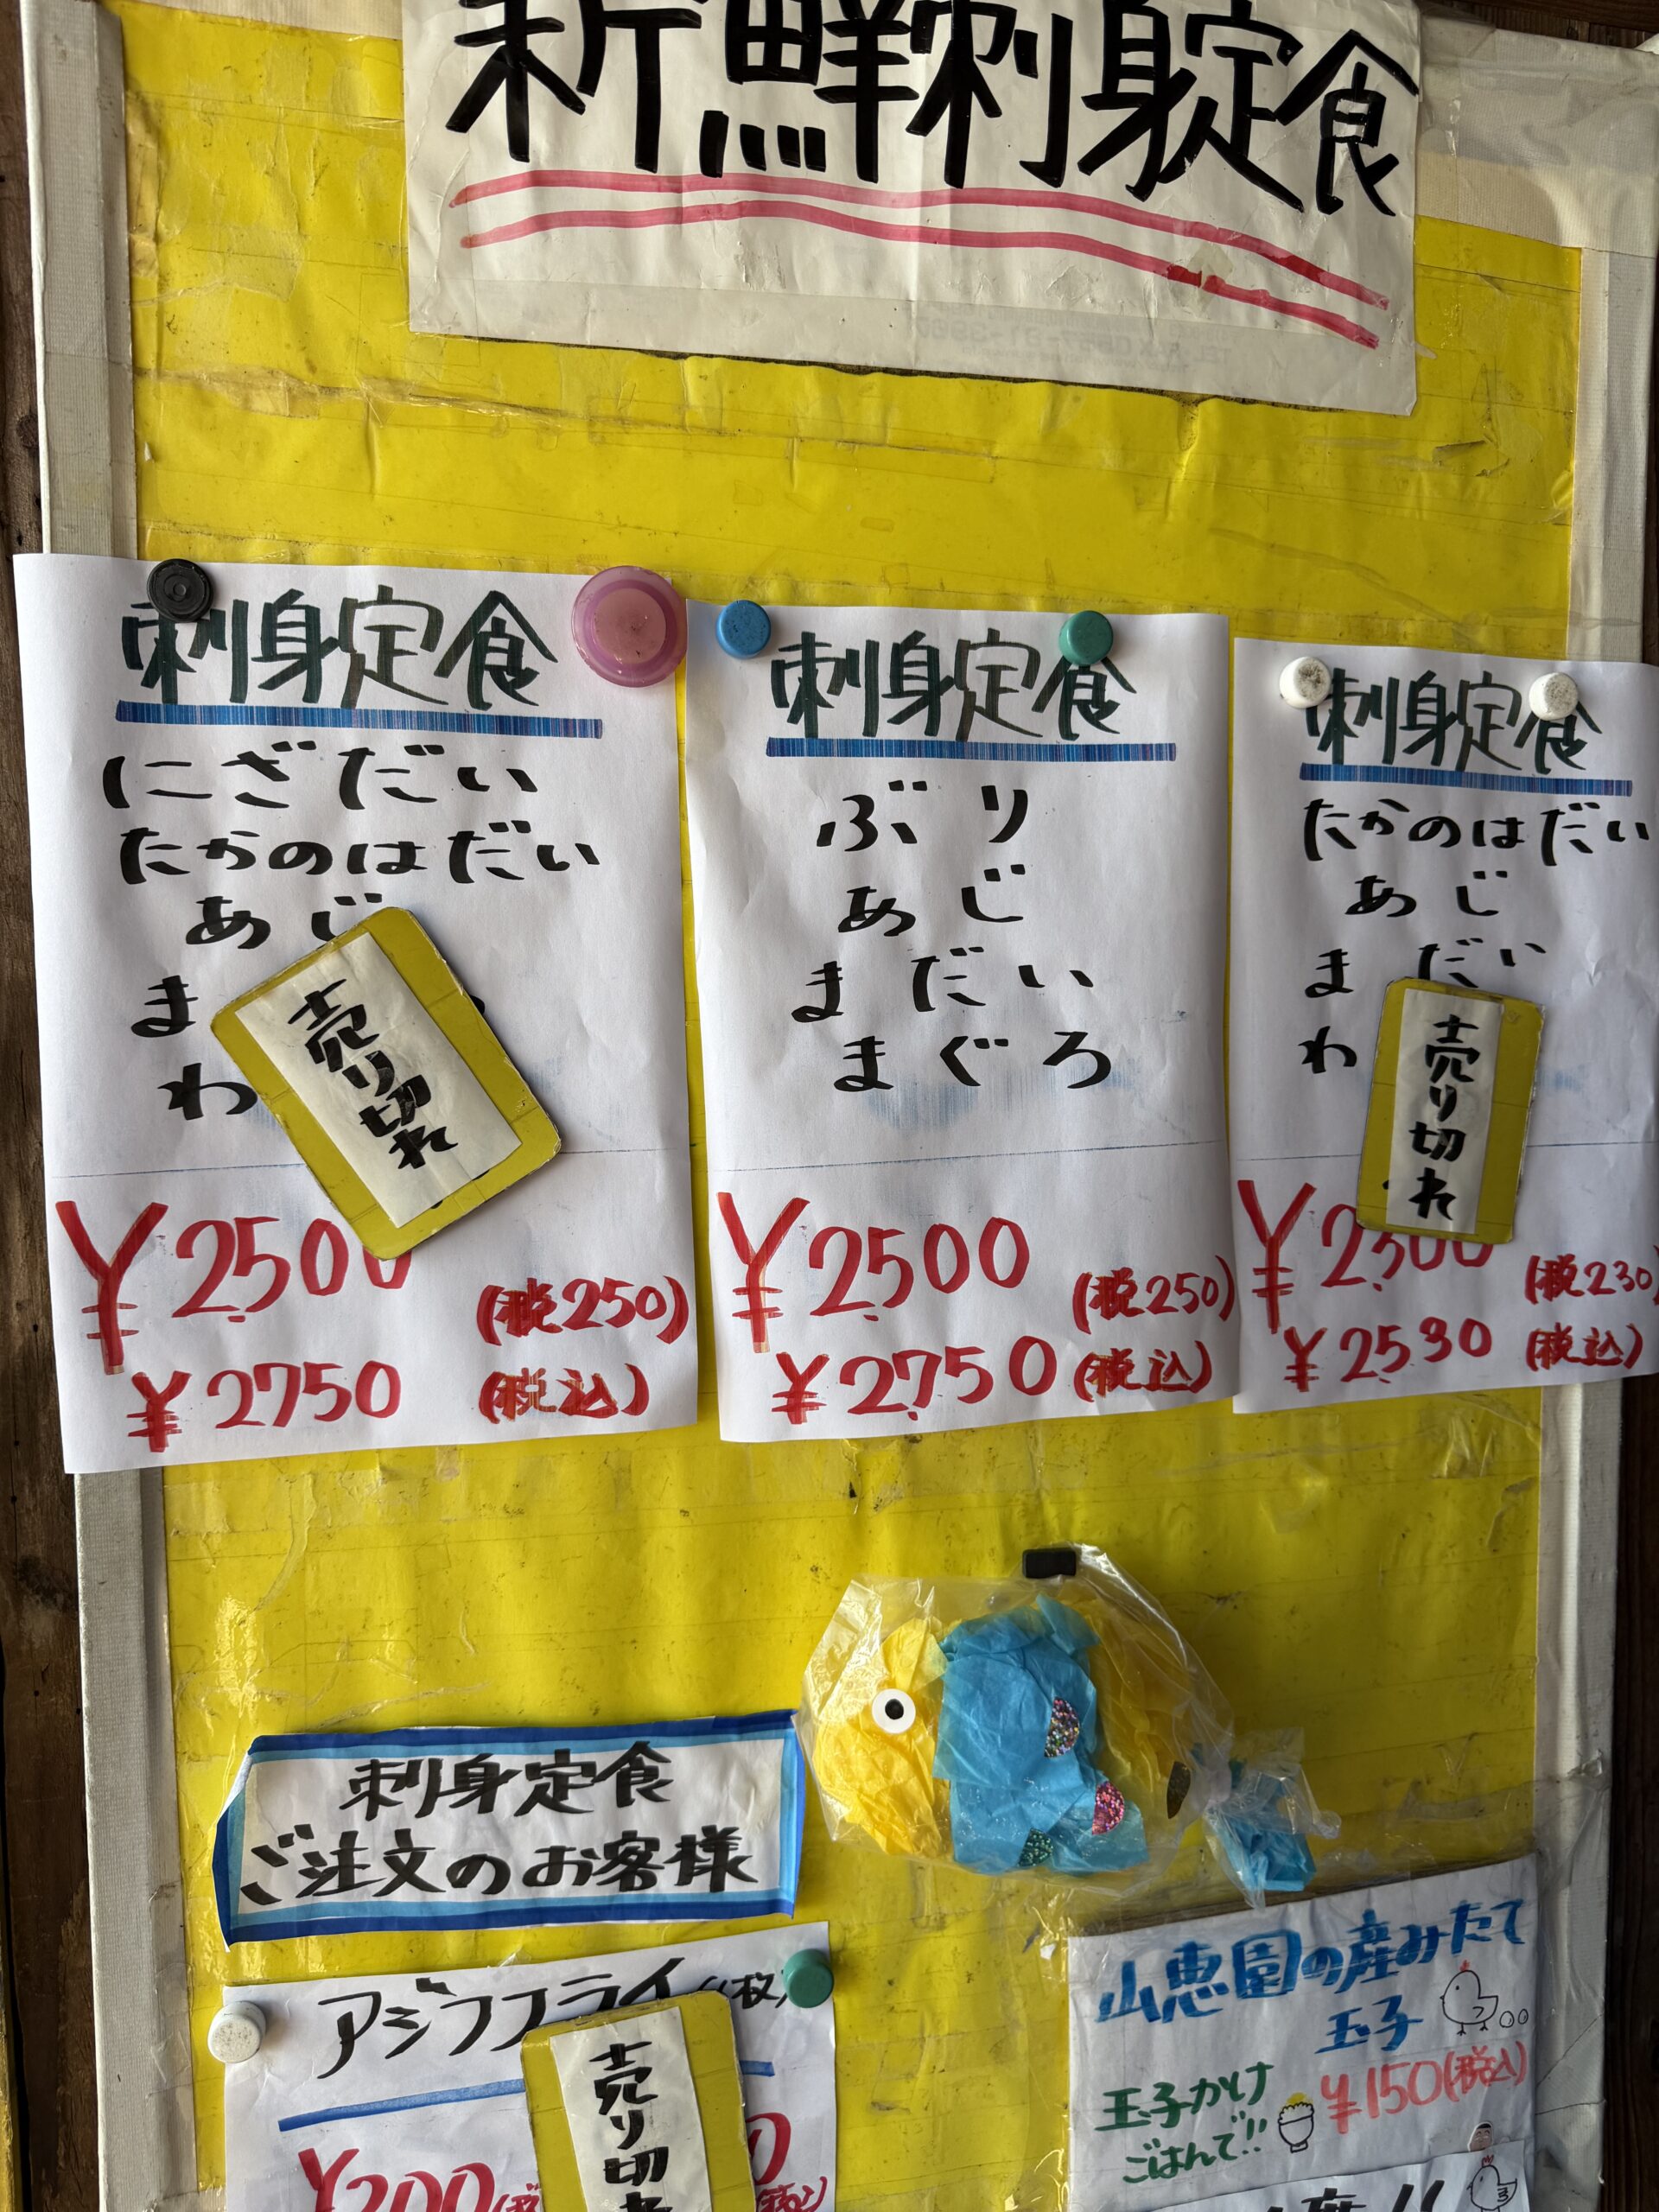 新鮮刺身定食
刺身定食
にざだい
たかのはだい
あじ
ま
わ
売り切れ
¥2500
(税250)
¥2750 (税込)
刺身定食
ぶり
あじ
まだい
まぐろ
¥2500
(税250)
¥2750 (税込)
刺身定食
たかのはだい
あじ
まだい
わ
売り切れ
¥2300
(税230)
¥2530 (税込)
刺身定食
ご注文のお客様
アジフライ(1枚)
売り切れ
¥200
山恵園の産みたて
玉子
玉子かけ
ごはんで!!
¥150(税込)